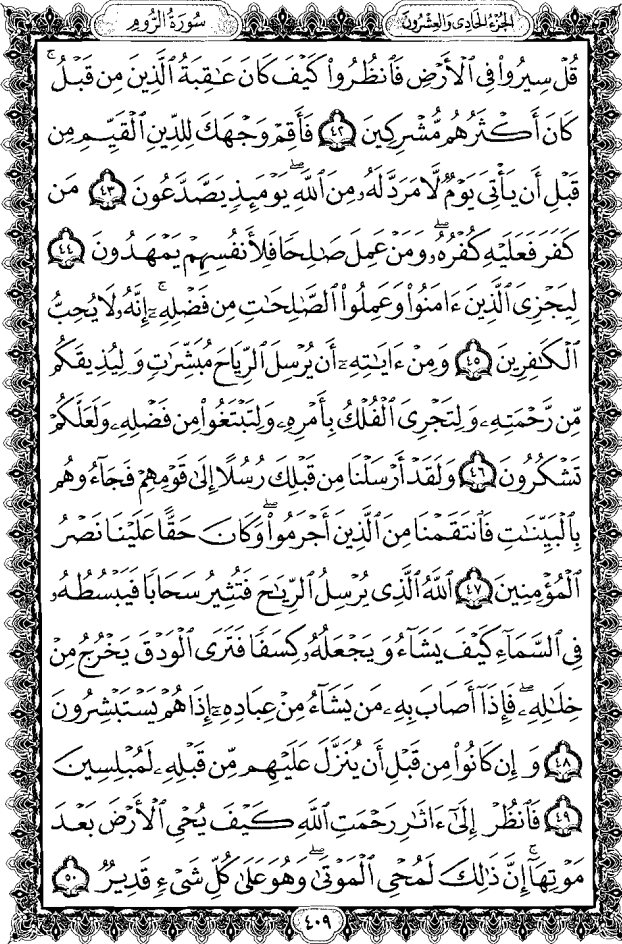 الجزء الحادى والعشرون
سورة الروم
قُلْ سِيرُوا۟ فِى ٱلْأَرْضِ فَٱنظُرُوا۟ كَيْفَ كَانَ عَـٰقِبَةُ ٱلَّذِينَ مِن قَبْلُ ۚ
كَانَ أَكْثَرُهُم مُّشْرِكِينَ ٤٢ فَأَقِمْ وَجْهَكَ لِلدِّينِ ٱلْقَيِّمِ مِن
قَبْلِ أَن يَأْتِىَ يَوْمٌ لَّا مَرَدَّ لَهُۥ مِنَ ٱللَّهِ ۖ يَوْمَئِذٍ يَصَّدَّعُونَ ٤٣ مَن
كَفَرَ فَعَلَيْهِ كُفْرُهُۥ ۖ وَمَنْ عَمِلَ صَـٰلِحًا فَلِأَنفُسِهِمْ يَمْهَدُونَ ٤٤
لِيَجْزِىَ ٱلَّذِينَ ءَامَنُوا۟ وَعَمِلُوا۟ ٱلصَّـٰلِحَـٰتِ مِن فَضْلِهِۦٓ ۚ إِنَّهُۥ لَا يُحِبُّ
ٱلْكَـٰفِرِينَ ٤٥ وَمِنْ ءَايَـٰتِهِۦٓ أَن يُرْسِلَ ٱلرِّيَاحَ مُبَشِّرَٰتٍ وَلِيُذِيقَكُم
مِّن رَّحْمَتِهِۦ وَلِتَجْرِىَ ٱلْفُلْكُ بِأَمْرِهِۦ وَلِتَبْتَغُوا۟ مِن فَضْلِهِۦ وَلَعَلَّكُمْ
تَشْكُرُونَ ٤٦ وَلَقَدْ أَرْسَلْنَا مِن قَبْلِكَ رُسُلًا إِلَىٰ قَوْمِهِمْ فَجَآءُوهُم
بِٱلْبَيِّنَـٰتِ فَٱنتَقَمْنَا مِنَ ٱلَّذِينَ أَجْرَمُوا۟ ۖ وَكَانَ حَقًّا عَلَيْنَا نَصْرُ
ٱلْمُؤْمِنِينَ ٤٧ ٱللَّهُ ٱلَّذِى يُرْسِلُ ٱلرِّيَـٰحَ فَتُثِيرُ سَحَابًا فَيَبْسُطُهُۥ
فِى ٱلسَّمَآءِ كَيْفَ يَشَآءُ وَيَجْعَلُهُۥ كِسَفًا فَتَرَى ٱلْوَدْقَ يَخْرُجُ مِنْ
خِلَـٰلِهِۦ ۖ فَإِذَآ أَصَابَ بِهِۦ مَن يَشَآءُ مِنْ عِبَادِهِۦٓ إِذَا هُمْ يَسْتَبْشِرُونَ
٤٨ وَإِن كَانُوا۟ مِن قَبْلِ أَن يُنَزَّلَ عَلَيْهِم مِّن قَبْلِهِۦ لَمُبْلِسِينَ
٤٩ فَٱنظُرْ إِلَىٰٓ ءَاثَـٰرِ رَحْمَتِ ٱللَّهِ كَيْفَ يُحْىِ ٱلْأَرْضَ بَعْدَ
مَوْتِهَآ ۚ إِنَّ ذَٰلِكَ لَمُحْىِ ٱلْمَوْتَىٰ ۖ وَهُوَ عَلَىٰ كُلِّ شَىْءٍ قَدِيرٌ ٥٠
٤٠٩